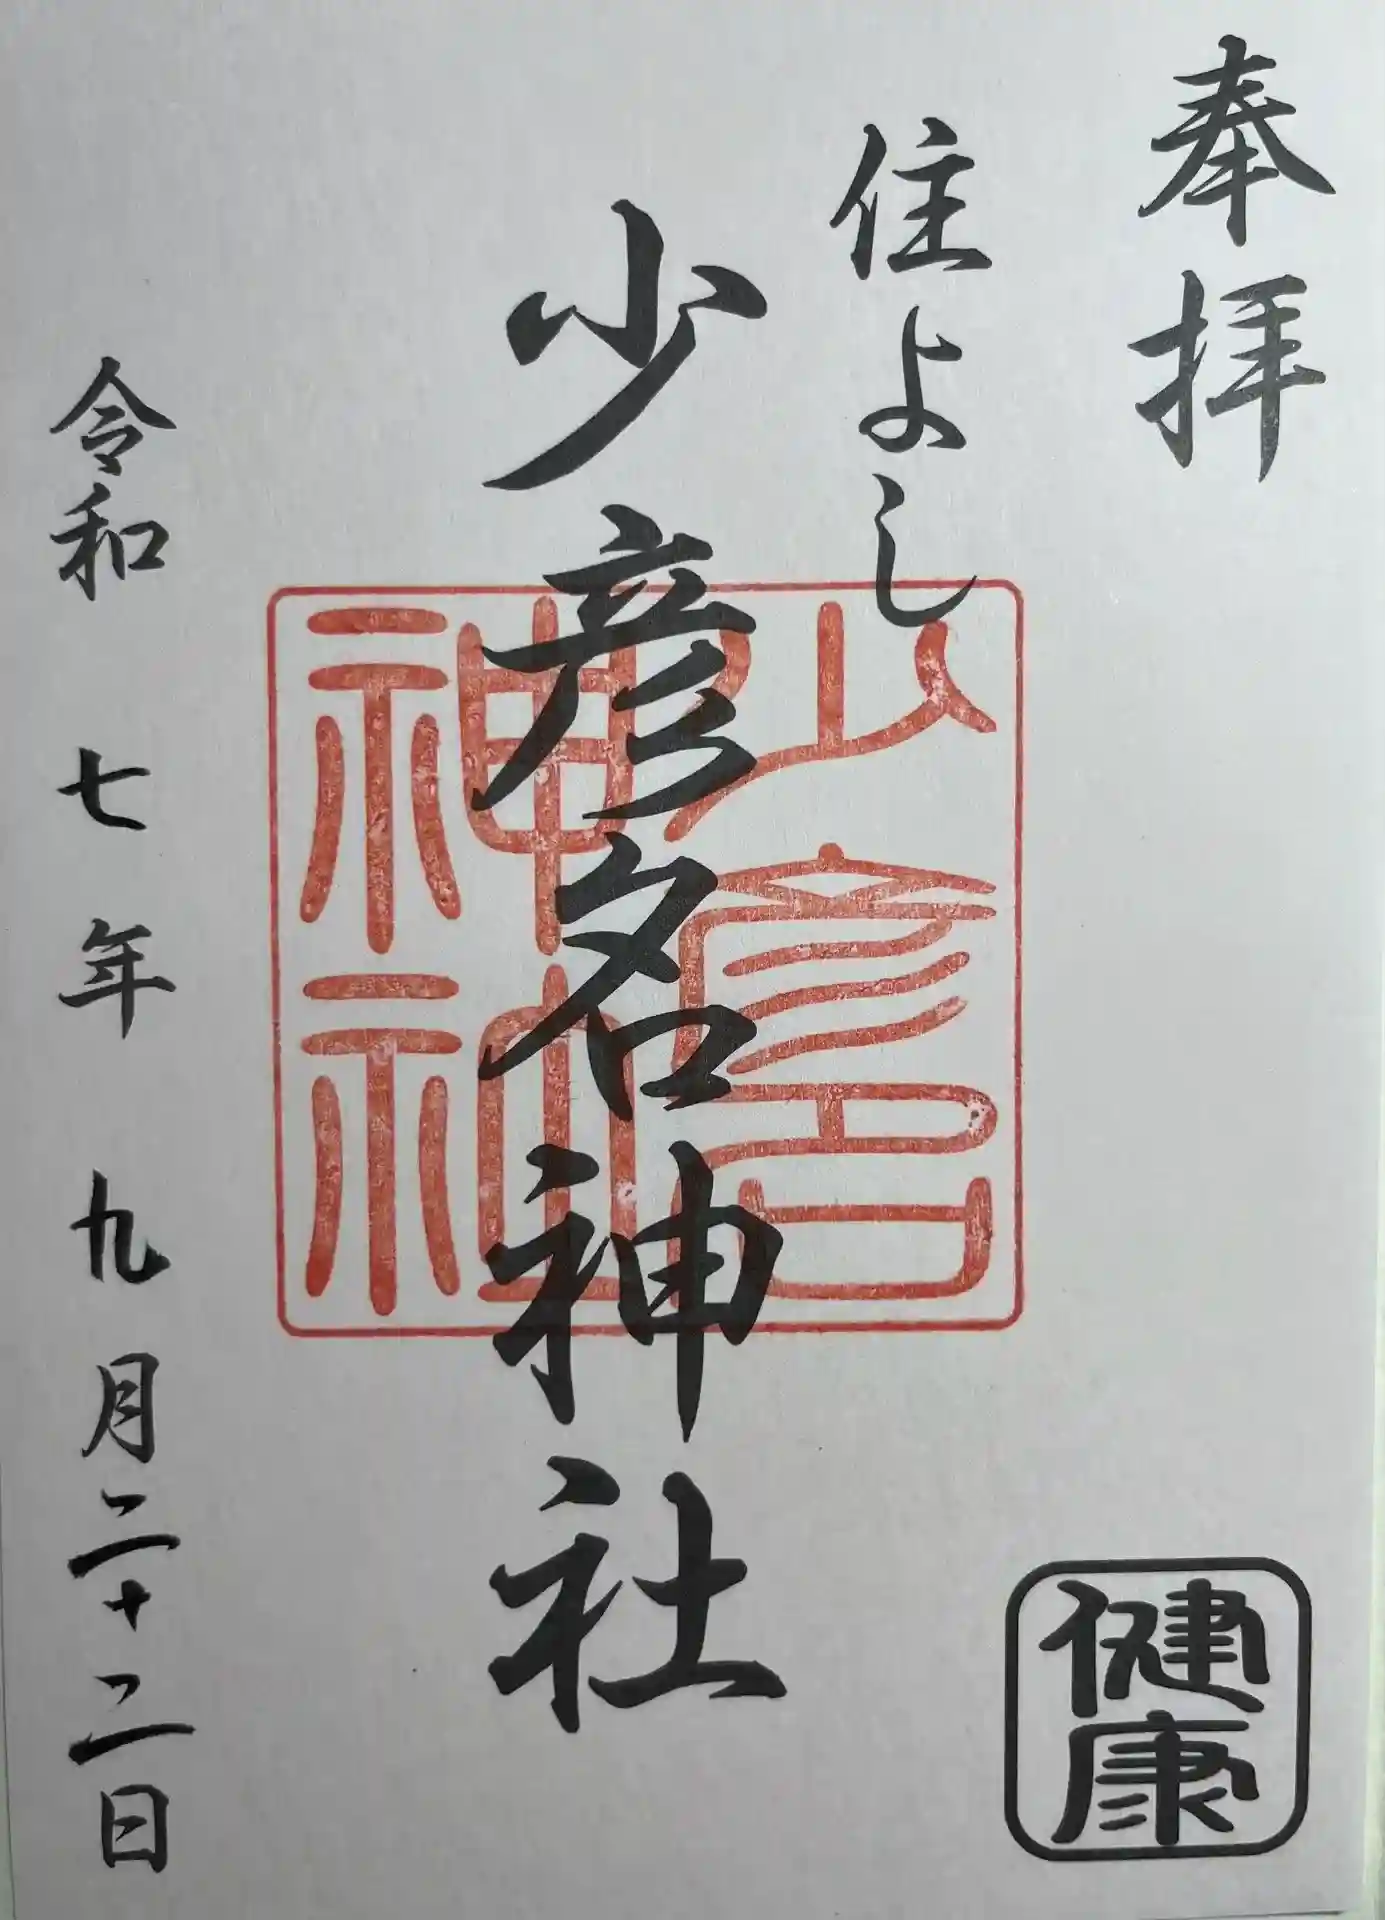 奉拝
健康
住よし
少彦名神社
少彦名
神社
令和七年九月二十二日